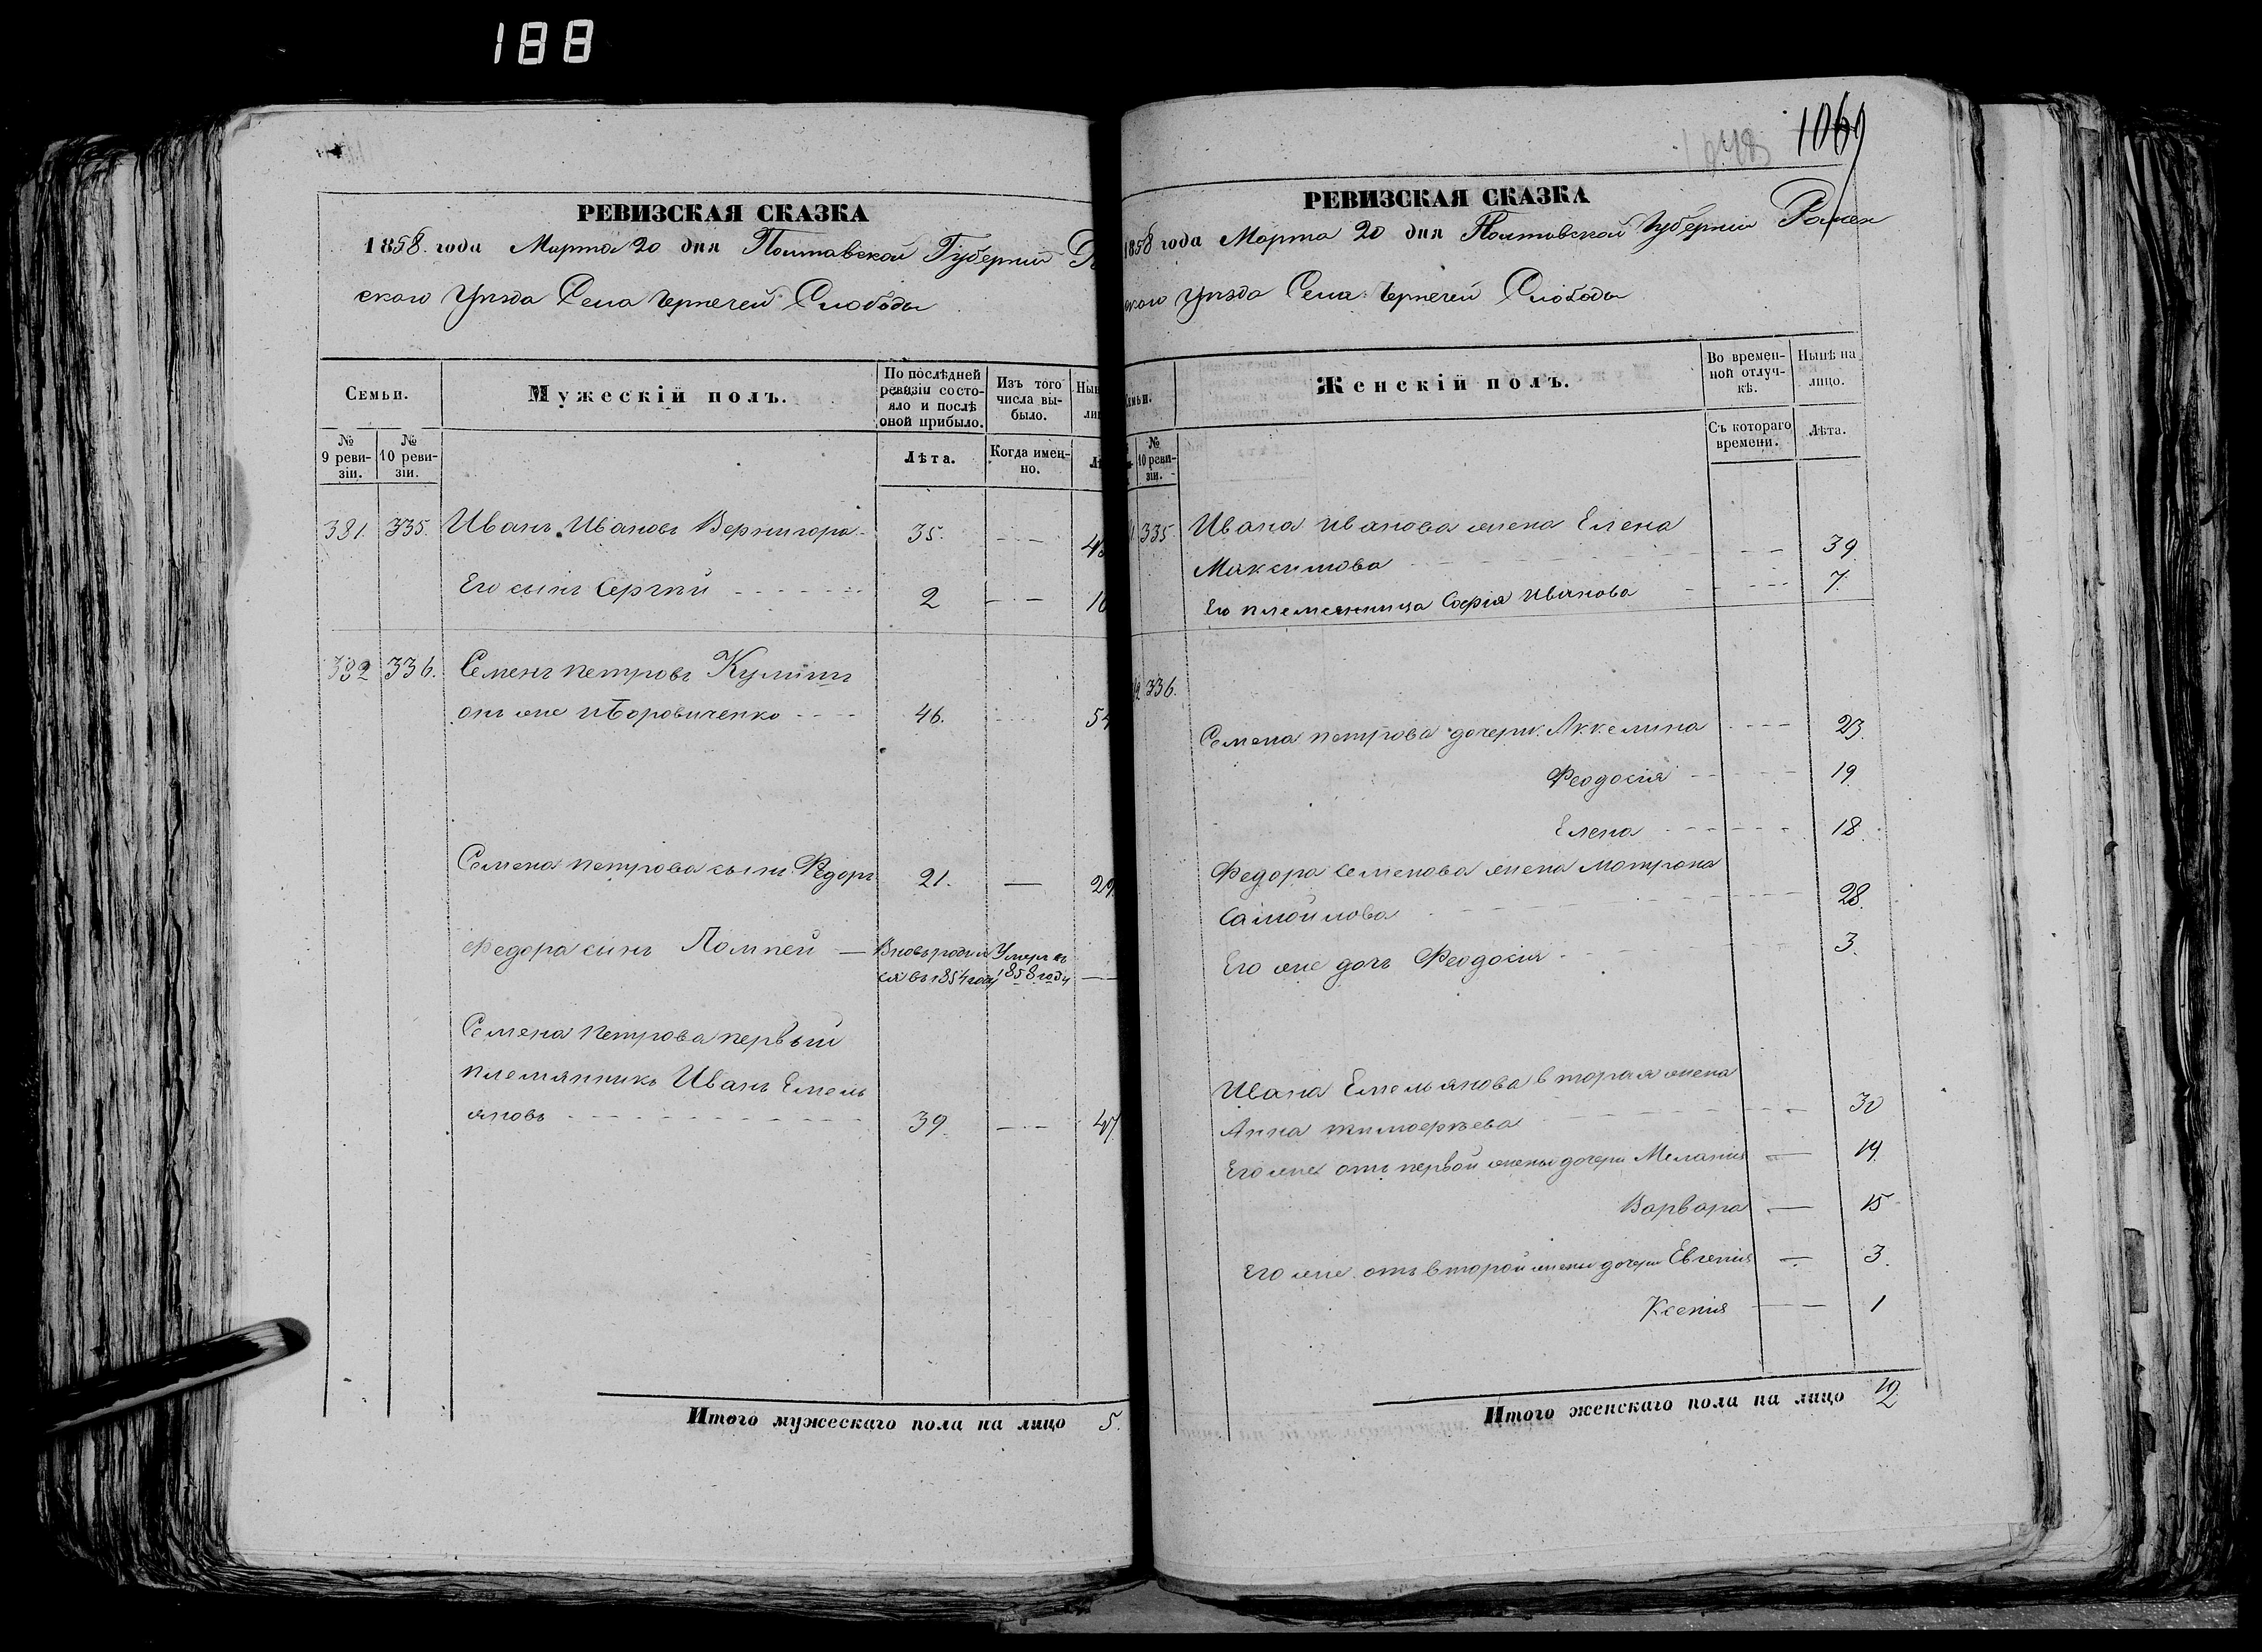 188
РЕВИЗСКАЯ СКАЗКА
1858. года Марта 20 дня Полтавской Губернии
ского Уѣзда Села Чернечей Слободы
Семьи.
Мужескій полъ.
По послѣдней ревизіи состояло и послѣ оной прибыло.
Изъ того числа выбыло.
№ 9 ревизіи.
№ 10 ревизіи.
Лѣта.
Когда именно.
381. 335. Иванъ Ивановъ Вернигора 35.
Его сынъ Сергѣй 2
382 336. Семенъ Петровъ
онъ же 46. 54
Семена Петрова сынъ Федоръ 21. — 29.
Федора сынъ Помпей — Вновь родил Умеръ въ
ся въ 1854 году 1858 году —
Семена Петрова первый
племянникъ Иванъ Емель
яновъ 39. 47.
Итого мужескаго пола на лицо 5.
1069
РЕВИЗСКАЯ СКАЗКА
1858 года Марта 20 дня Полтавской Губернии Ромен
ского Уѣзда Села Чернечей Слободы
Женскій полъ.
Во временной отлучкѣ.
Нынѣ на лицо.
№ 10 ревизіи.
Съ котораго времени.
Лѣта.
335. Ивана Иванова жена Елена
Максимова 39
Его племянница Софія Иванова 7.
336.
Семена Петрова дочери Аккелина 23.
Феодосія 19.
Елена 18.
Федора Семенова жена Мотрона
Самойлова 28.
Его же дочь Феодосія 3.
Ивана Емельянова вторая жена
Анна Тимоѳеева 30
Его же отъ первой жены дочери Меланія 19.
Варвара 15
Его же отъ второй жены дочери Евгенія 3.
Ксенія 1
Итого женскаго пола на лицо 12